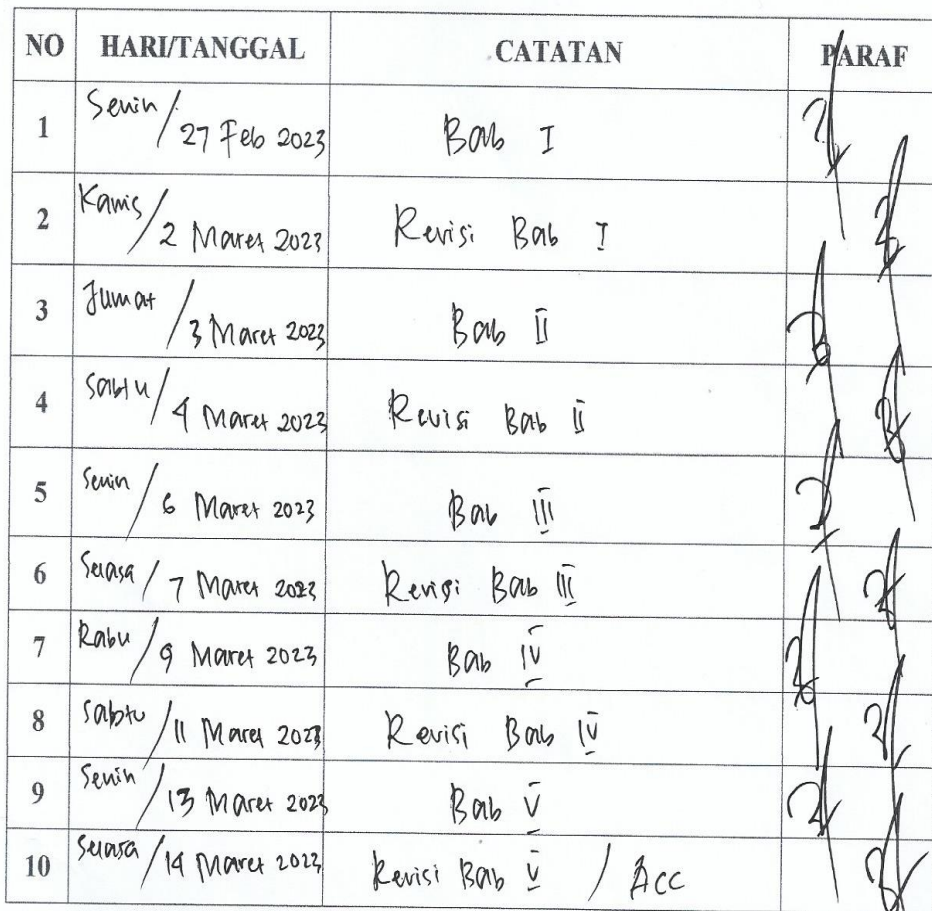 NO HARI/TANGGAL CATATAN PARAF
1 Senin / 27 Feb 2023 Bab I
2 Kamis / 2 Maret 2023 Revisi Bab I
3 Jumat / 3 Maret 2023 Bab II
4 Sabtu / 4 Maret 2023 Revisi Bab II
5 Senin / 6 Maret 2023 Bab III
6 Selasa / 7 Maret 2023 Revisi Bab III
7 Rabu / 9 Maret 2023 Bab IV
8 Sabtu / 11 Maret 2023 Revisi Bab IV
9 Senin / 13 Maret 2023 Bab V
10 Selasa / 14 Maret 2023 Revisi Bab V / Acc